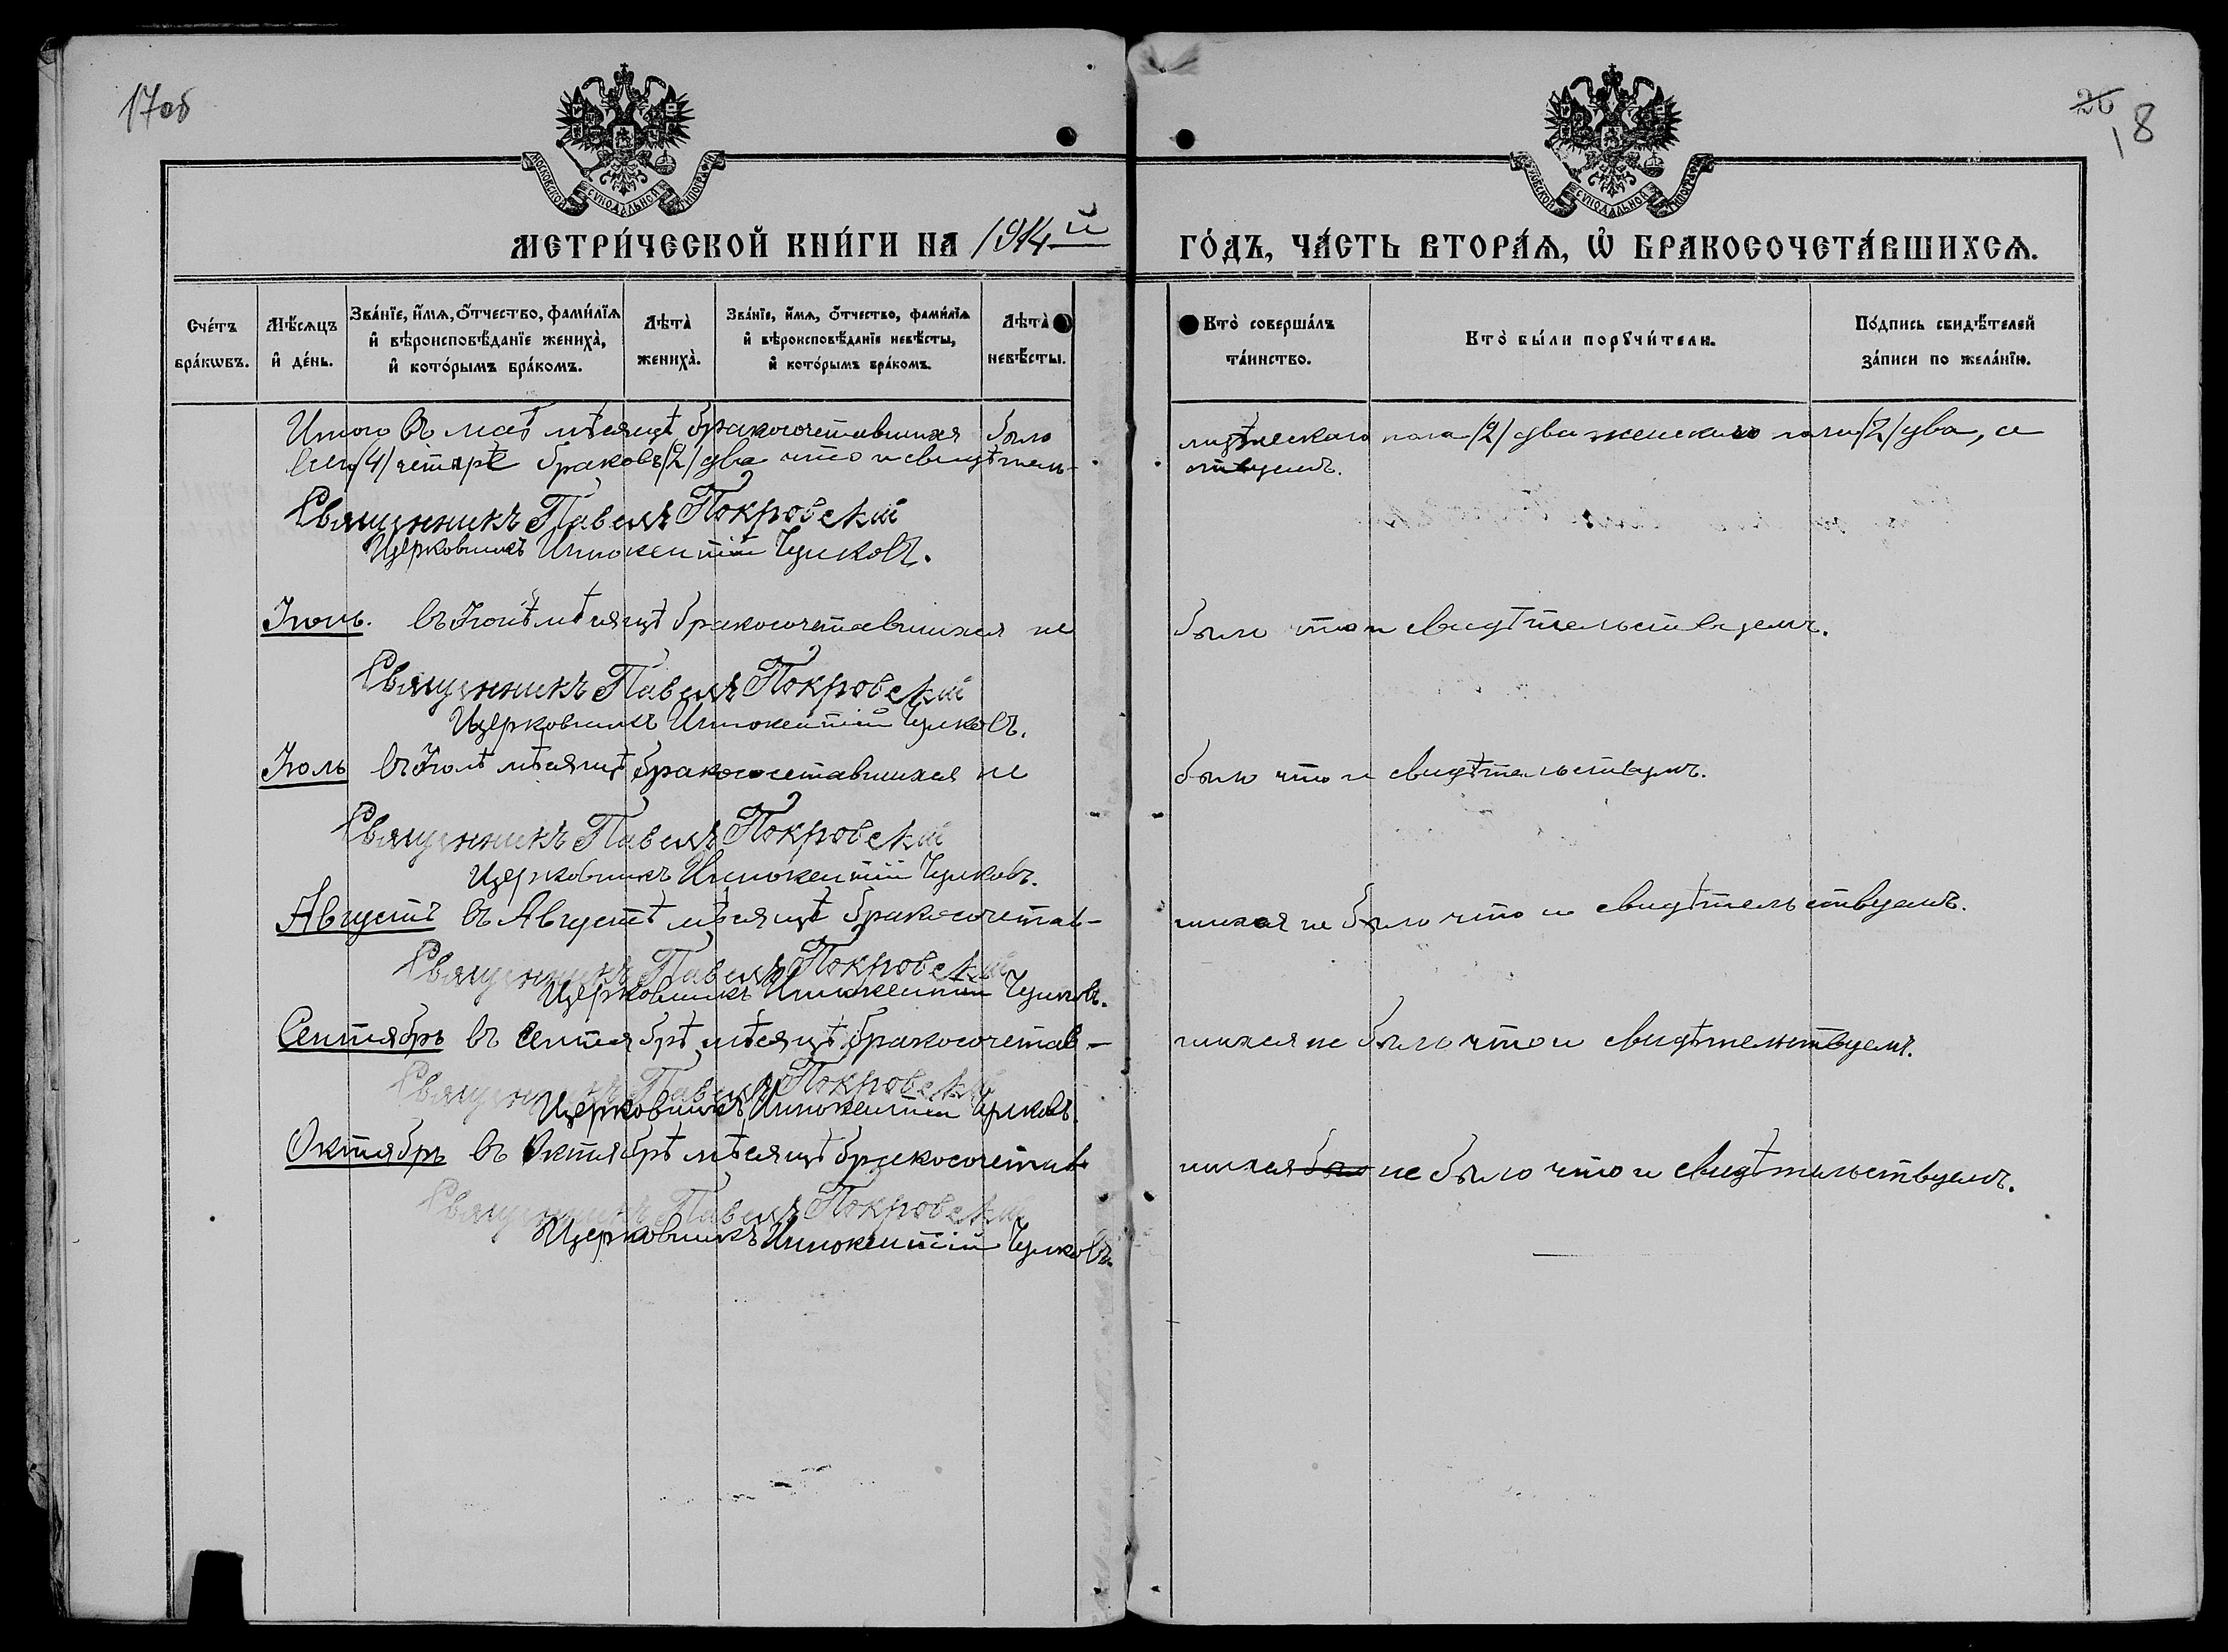 17об
26
18
МОСКОВСКОЙ СѴНОДАЛЬНОЙ ТИПОГРАФІИ
МОСКОВСКОЙ СѴНОДАЛЬНОЙ ТИПОГРАФІИ
МЕТРИ́ЧЕСКОЙ КНИ́ГИ НА 1914й ГО́ДЪ, ЧА́СТЬ ВТОРА́Ѧ, Ѽ БРАКОСОЧЕТА́ВШИХСѦ.
Сче́тъ бра́кѡвъ.
Мѣ́сѧцъ и҆ де́нь.
Зва́нїе, и҆́мѧ, ѻ҆́тчество, фами́лїѧ и҆ вѣроисповѣ́данїе жениха̀, и҆ кото́рымъ бра́комъ.
Лѣта̀ жениха̀.
Зва́нїе, и҆́мѧ, ѻ҆́тчество, фами́лїѧ и҆ вѣроисповѣ́данїе невѣ́сты, и҆ кото́рымъ бра́комъ.
Лѣта̀ невѣ́сты.
Кто̀ соверша́лъ та́инство.
Кто̀ бы́ли порꙋчи́тели.
По́дпись свидѣ́телей за́писи по жела́нїю.
Итого въ маѣ мѣсяцѣ бракосочетавшихся было мужескаго пола /2/ два женскаго пола /2/ два, а
всего /4/ четыре браковъ /2/ два что и свидѣтель-ствуемъ.
Священникъ Павелъ Покровскій
Церковникъ Иннокентій Чулковъ.
Іюнь. въ Іюнѣ мѣсяцѣ бракосочетавшихся не было что и свидѣтельствуемъ.
Священникъ Павелъ Покровскій
Церковникъ Иннокентій Чулковъ.
Іюль въ Іюлѣ мѣсяцѣ бракосочетавшихся не было что и свидѣтельствуемъ.
Священникъ Павелъ Покровскій
Церковникъ Иннокентій Чулковъ.
Августъ въ Августѣ мѣсяцѣ бракосочетав-шихся не было что и свидѣтельствуемъ.
Священникъ Павелъ Покровскій
Церковникъ Иннокентій Чулковъ.
Сентябрь въ Сентябрѣ мѣсяцѣ бракосочетав-шихся не было что и свидѣтельствуемъ.
Священникъ Павелъ Покровскій
Церковникъ Иннокентій Чулковъ.
Октябрь въ Октябрѣ мѣсяцѣ бракосочетав-шихся было не было что и свидѣтельствуемъ.
Священникъ Павелъ Покровскій
Церковникъ Иннокентій Чулковъ.